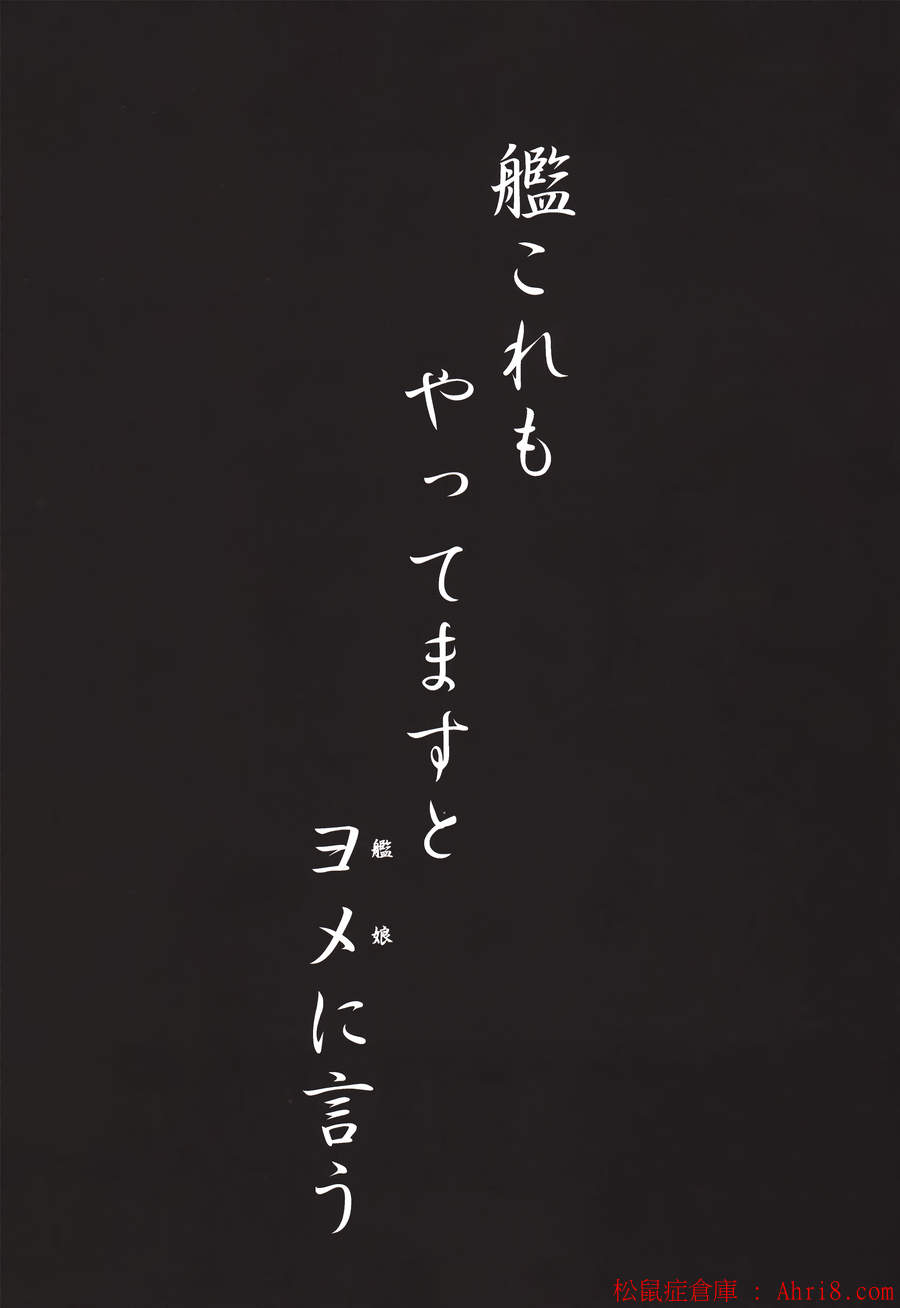 艦これも
やってますと
ヨメに言う
艦娘
松鼠症倉庫 : Ahri8.com